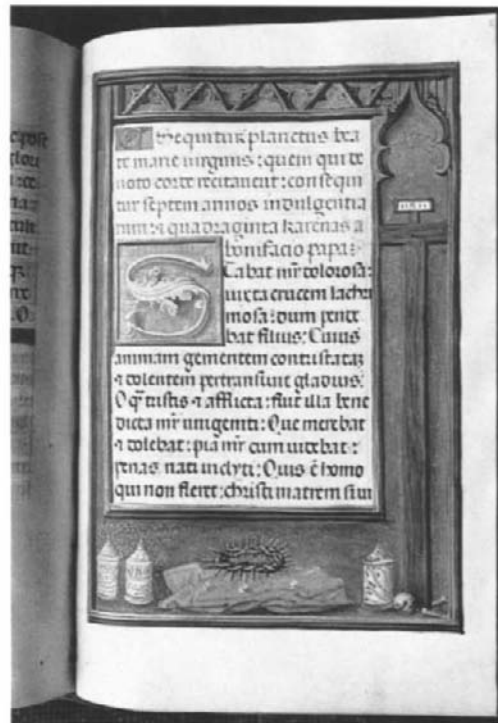 Sequitur planctus bea
te marie virginis: quem qui de
uoto corde recitauerit: consequi
tur septem annos indulgentia
rum: ⁊ quadraginta karenas a
bonifacio papa:
STabat mr̄ dolorosa:
iuxta crucem lachri
mosa: dum pende
bat filius: Cuius
animam gementem contristataꝫ
⁊ dolentem pertransiuit gladius:
O q̄ tristis ⁊ afflicta: fuit illa bene
dicta mr̄ unigeniti: Que merebat
⁊ dolebat: pia mr̄ cum uidebat:
penas nati inclyti: Quis ē homo
qui non fleret: christi matrem si ui